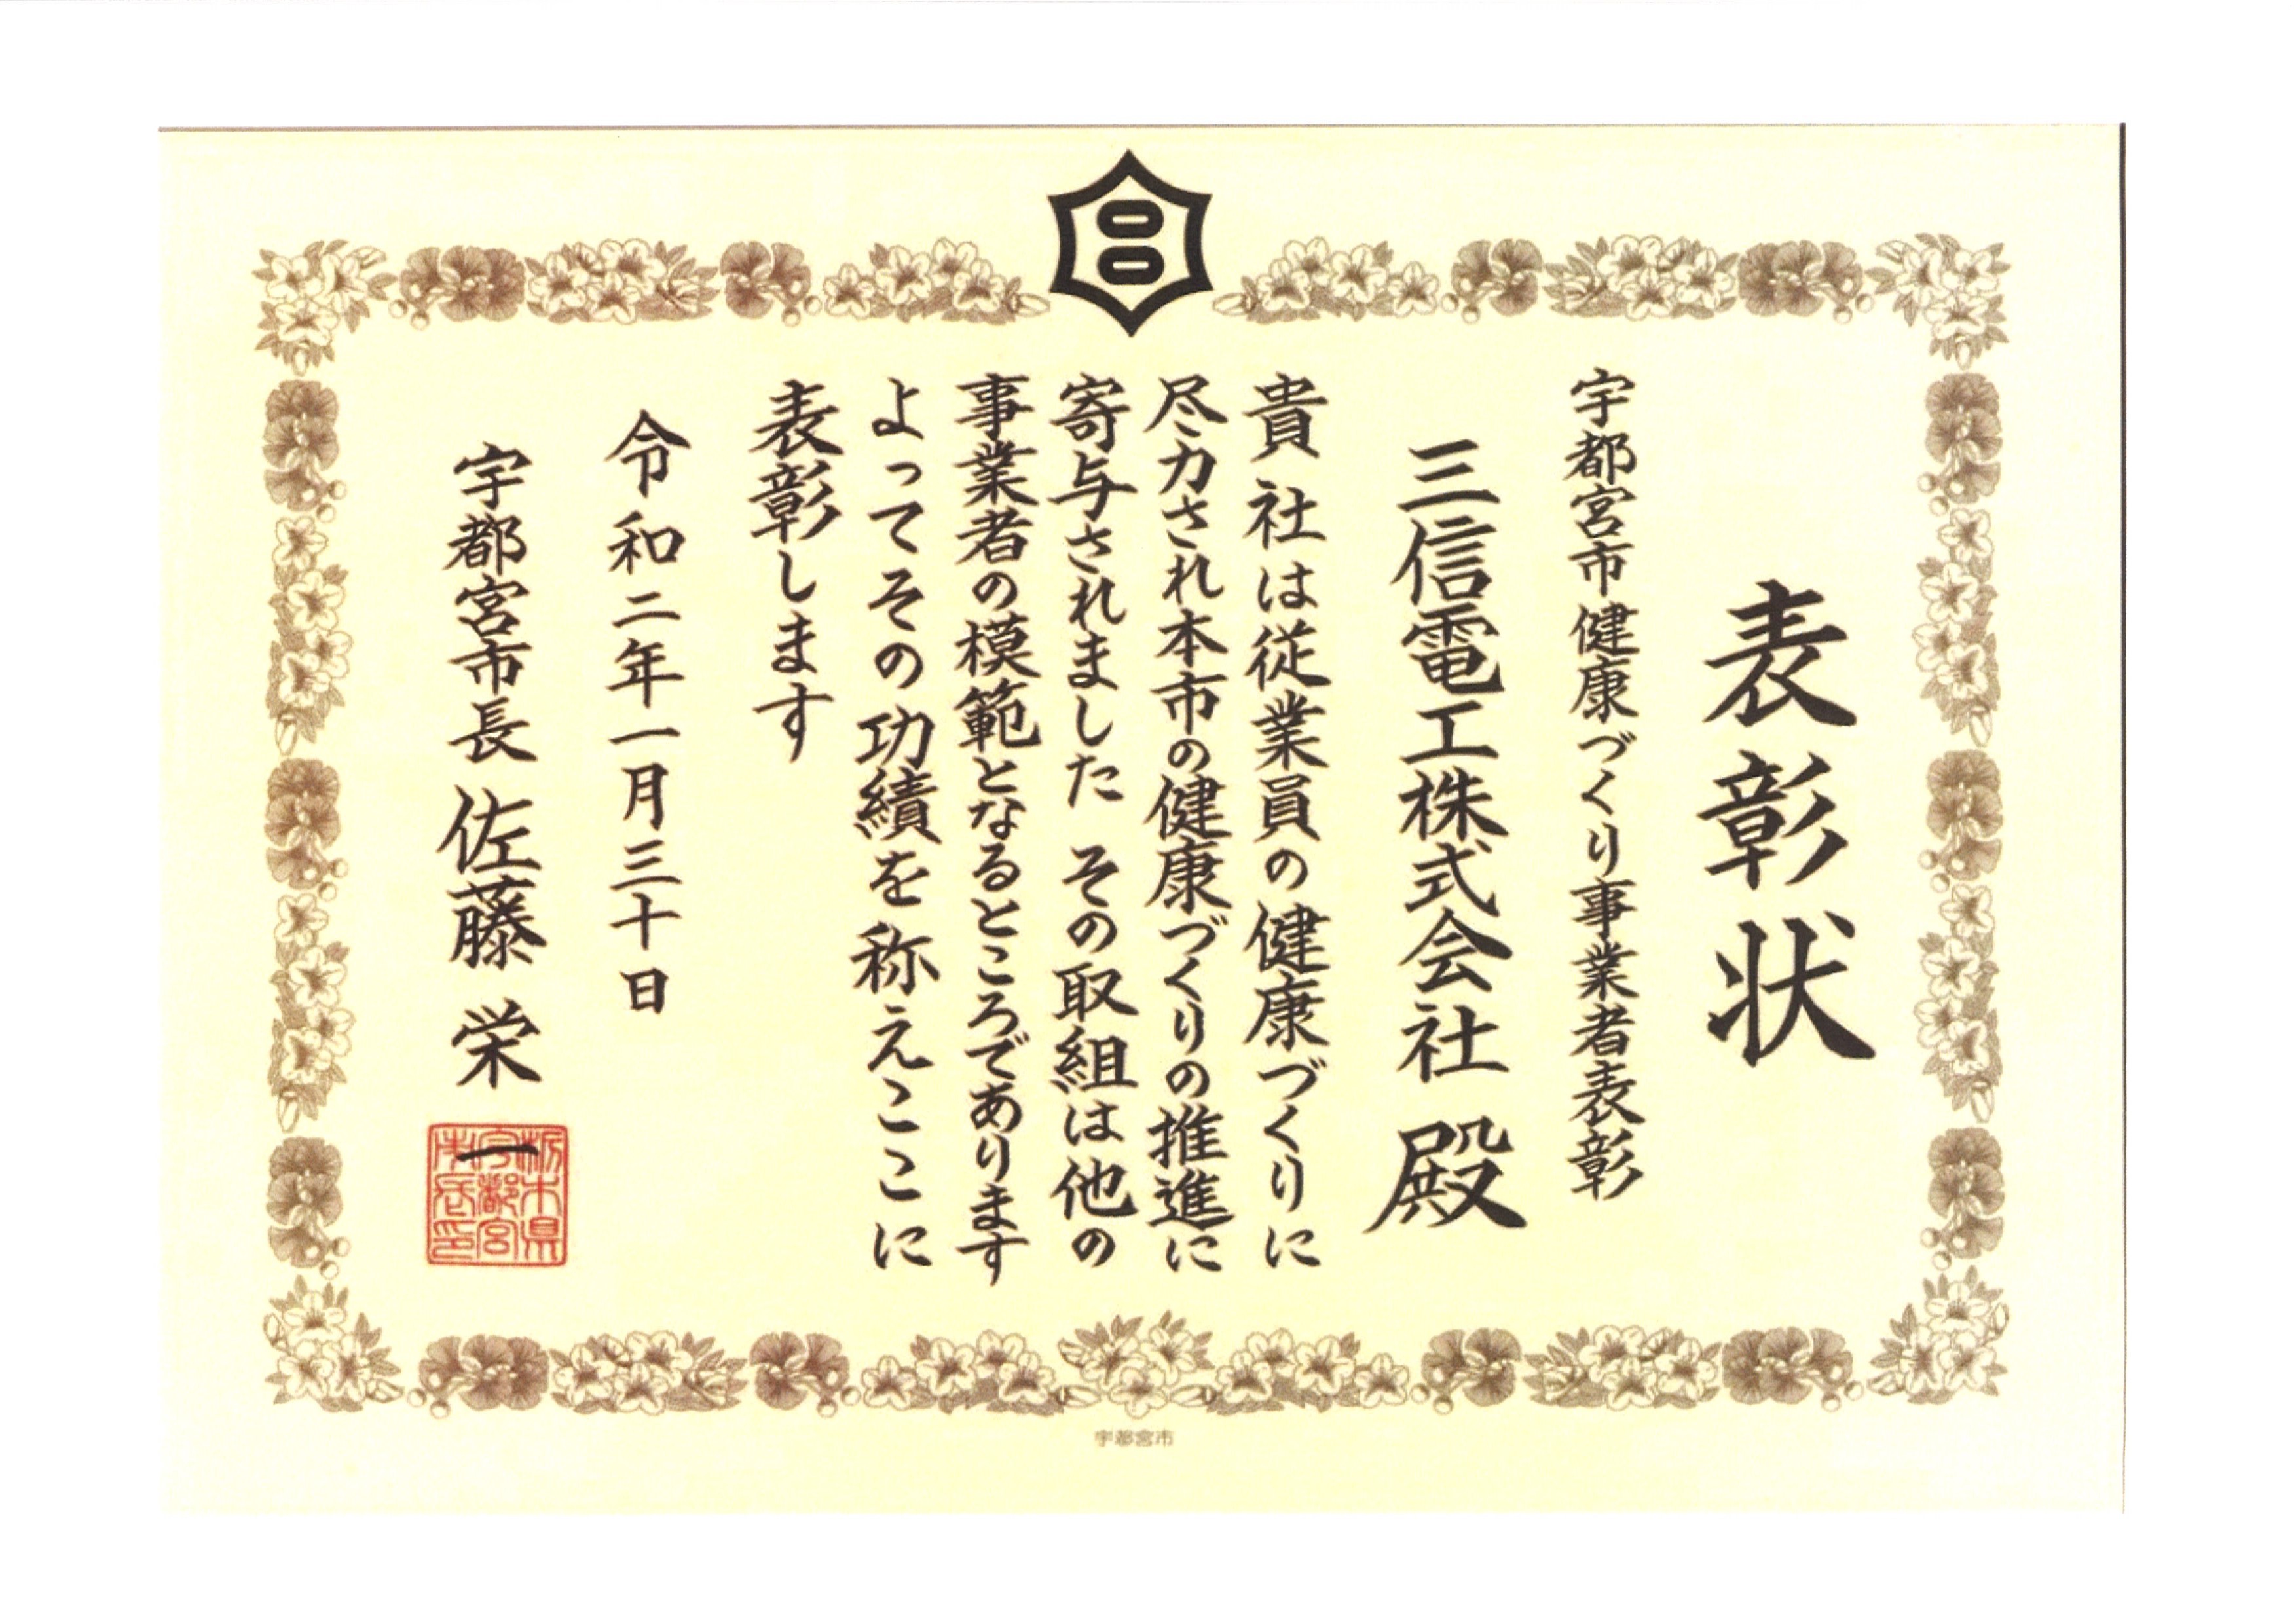 表彰状
宇都宮市健康づくり事業者表彰
三信電工株式会社 殿
貴社は従業員の健康づくりに
尽力され本市の健康づくりの推進に
寄与されました その取組は他の
事業者の模範となるところであります
よってその功績を称えここに
表彰します
令和二年一月三十日
宇都宮市長 佐藤栄一
栃木県
宇都宮
市長印
宇都宮市